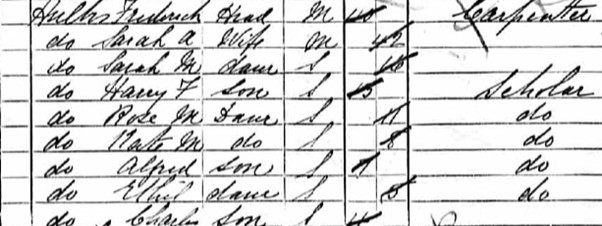 Frederick Head M 40 Carpenter
do Sarah A Wife M 42
do Sarah M daur S 18
do Harry F son S 15 Scholar
do Rose M Daur S 11 do
do Kate M do S 8 do
do Alfred son S 7 do
do Ethel daur S 5 do
do Charles son S 4